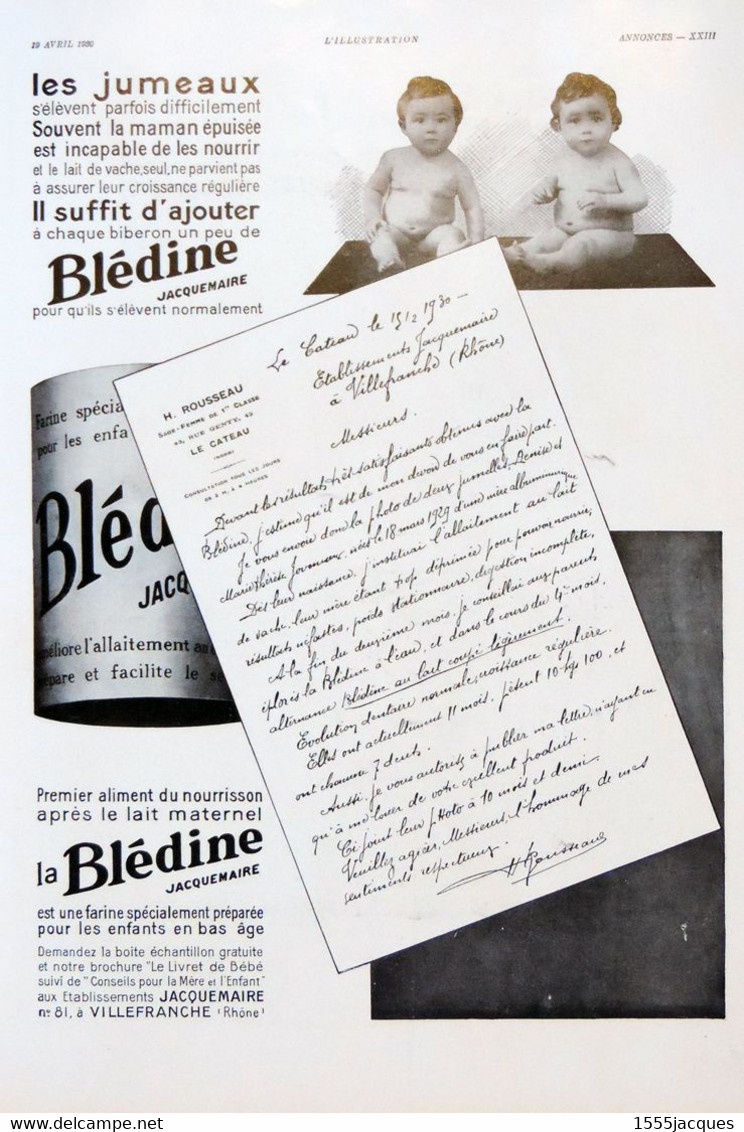 19 AVRIL 1930
L'ILLUSTRATION
ANNONCES — XXIII
les jumeaux
s'élèvent parfois difficilement
Souvent la maman épuisée
est incapable de les nourrir
et le lait de vache, seul, ne parvient pas
à assurer leur croissance régulière
Il suffit d'ajouter
à chaque biberon un peu de
Blédine
JACQUEMAIRE
pour qu'ils s'élèvent normalement
Farine spécia
pour les enfa
Bléd
JACQ
améliore l'allaitement au
prépare et facilite le se
Le Cateau le 15/2 1930 —
Etablissements Jacquemaire
à Villefranche (Rhône)
H. ROUSSEAU
SAGE-FEMME DE 1re CLASSE
43, RUE GENTY, 43
LE CATEAU
(NORD)
CONSULTATION TOUS LES JOURS
DE 2 H. A 4 HEURES
Messieurs.
Devant les résultats très satisfaisants obtenus avec la
Blédine, j'estime qu'il est de mon devoir de vous en faire part.
Je vous envoie donc la photo de deux jumelles, Denise et
Marie Thérèse, nées le 18 mars 1929 d'une mère albuminurique
Dès leur naissance, j'instituai l'allaitement au lait
de vache, leur mère étant trop déprimée pour pouvoir nourrir;
résultats néfastes, poids stationnaire, digestion incomplète,
A la fin du deuxième mois, je conseillai aux parents
éplorés la Blédine à l'eau, et dans le cours du 4me mois,
alternance Blédine au lait coupé légèrement.
Evolution dentaire normale, croissance régulière.
Elles ont actuellement 11 mois, pèsent 10 kgs 100, et
ont chacune 7 dents.
Aussi, je vous autorise à publier ma lettre, n'ayant eu
qu'à me louer de votre excellent produit.
Ci joint leur photo à 10 mois et demi.
Veuillez agréer, Messieurs, l'hommage de mes
sentiments respectueux.
H Rousseau
Premier aliment du nourrisson
après le lait maternel
la Blédine
JACQUEMAIRE
est une farine spécialement préparée
pour les enfants en bas âge
Demandez la boite échantillon gratuite
et notre brochure "Le Livret de Bébé
suivi de "Conseils pour la Mère et l'Enfant"
aux Etablissements JACQUEMAIRE
no 81, à VILLEFRANCHE (Rhône)
delcampe.net
1555jacques